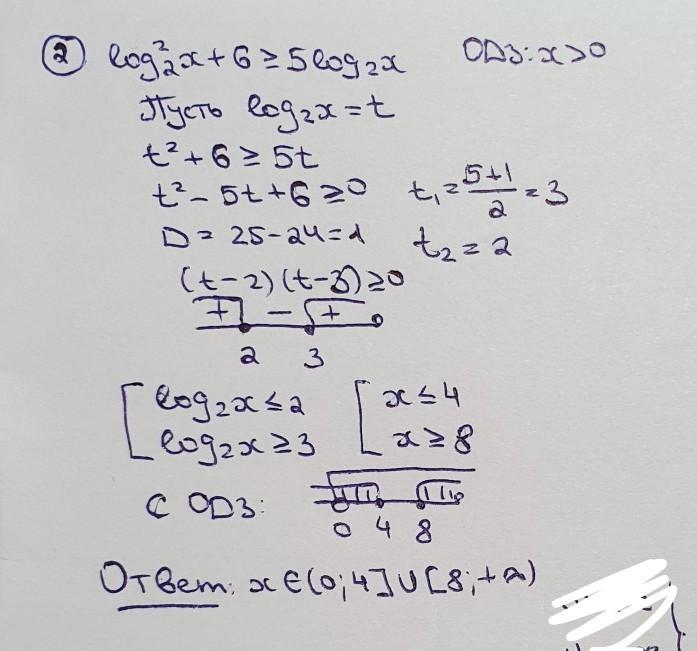 ② log₂²x + 6 ≥ 5log₂x ОДЗ: x>0
Пусть log₂x = t
t² + 6 ≥ 5t
t² - 5t + 6 ≥ 0 t₁ = (5+1)/2 = 3
D = 25 - 24 = 1 t₂ = 2
(t-2)(t-3) ≥ 0
+ - +
2 3
log₂x ≤ 2 x ≤ 4
log₂x ≥ 3 x ≥ 8
С ОДЗ:
0 4 8
Ответ: x ∈ (0; 4] ∪ [8; +∞)